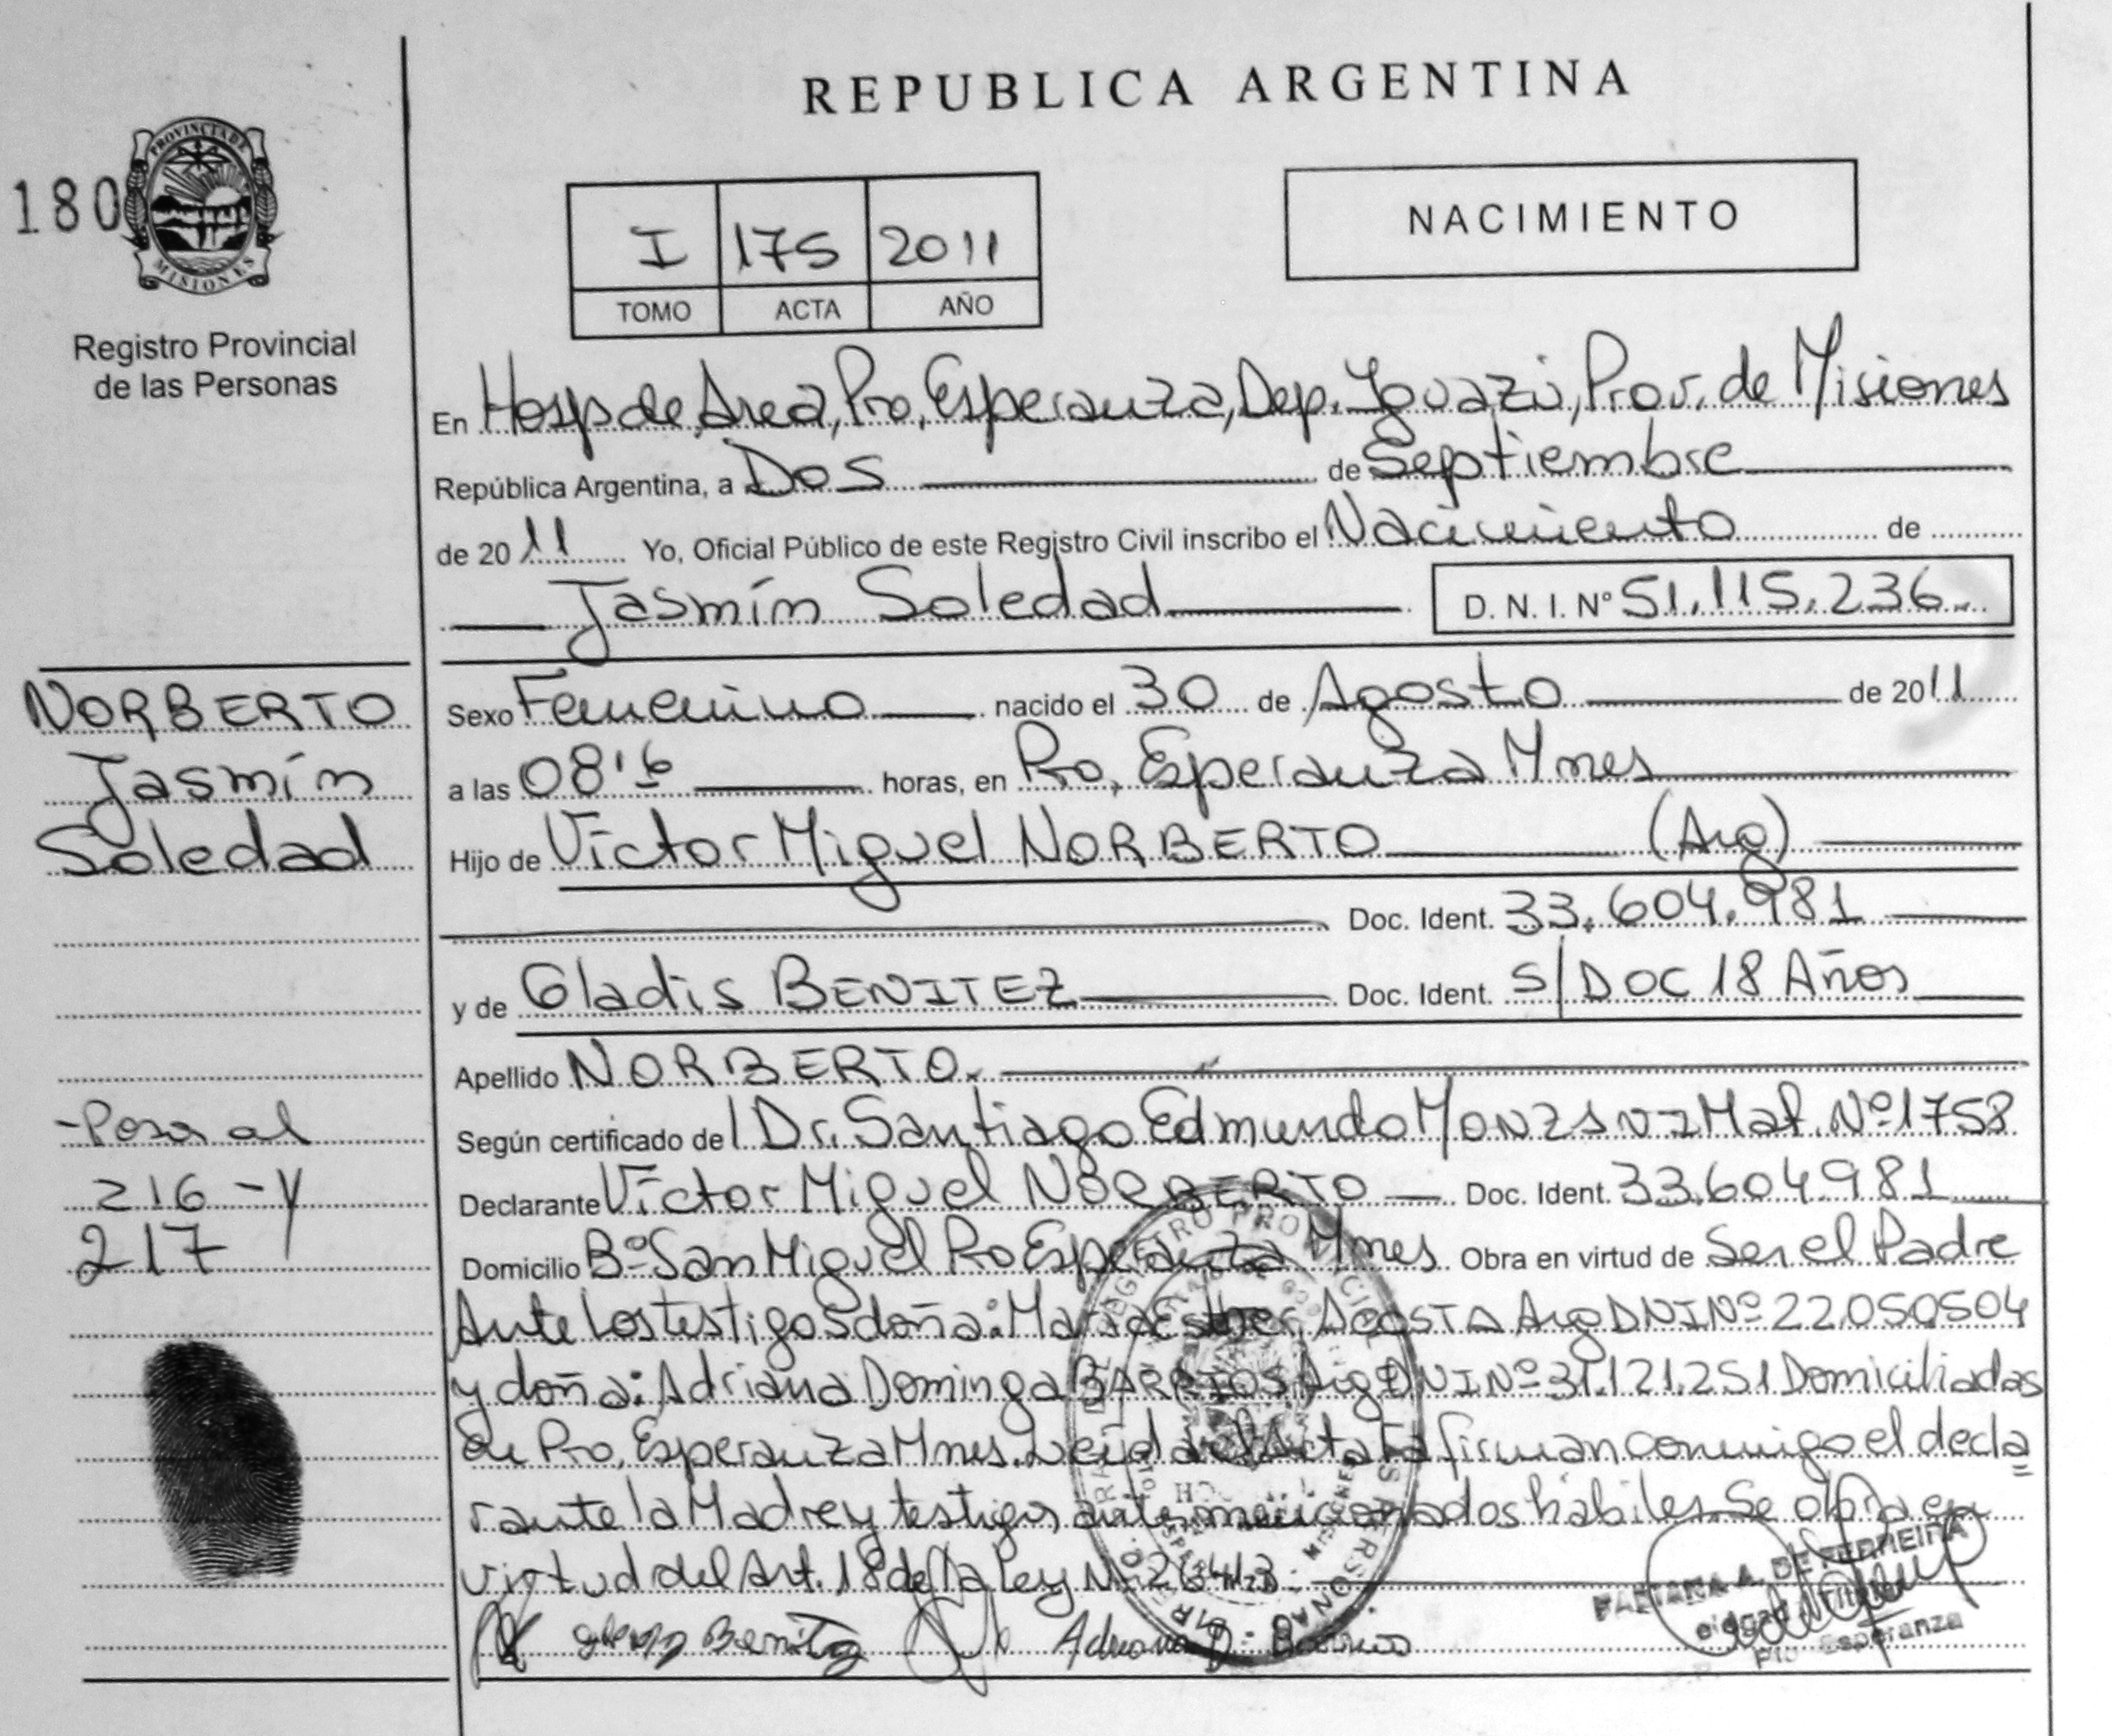 REPUBLICA ARGENTINA
180
PROVINCIA DE
MISIONES
Registro Provincial
de las Personas
I 175 2011
TOMO ACTA AÑO
NACIMIENTO
En Hosp de Area, Pto, Esperanza, Dep. Iguazú, Prov. de Misiones
República Argentina, a Dos de Septiembre
de 2011 Yo, Oficial Público de este Registro Civil inscribo el Nacimiento de
Jasmín Soledad D. N. I. Nº 51.115.236
NORBERTO
Jasmín
Soledad
Sexo Femenino nacido el 30 de Agosto de 2011
a las 08'6 horas, en Pto, Esperanza Mnes
Hijo de Víctor Miguel NORBERTO (Arg)
Doc. Ident. 33.604.981
y de Gladis BENITEZ Doc. Ident. S/DOC 18 Años
Apellido NORBERTO.
-Pasa al
216 - y
217
Según certificado del Dr. Santiago Edmundo Mat. Nº 1758
Declarante Víctor Miguel NORBERTO Doc. Ident. 33.604.981
Domicilio Bº San Miguel Pto Esperanza Mnes Obra en virtud de Ser el Padre
Ante los testigos doña: María Esther ACOSTA Arg DNI Nº 22.050504
y doña: Adriana Dominga BARRIOS Arg DNI Nº 31.121.251 Domiciliadas
en Pto, Esperanza Mnes. Leída el Acta la firman conmigo el decla
rante la Madre y testigos antes mencionados hábiles. Se obra en
virtud del Art. 18 de la Ley Nº 26413
Benitez Adriana D. Barrios
A. DE FERREIRA
Esperanza